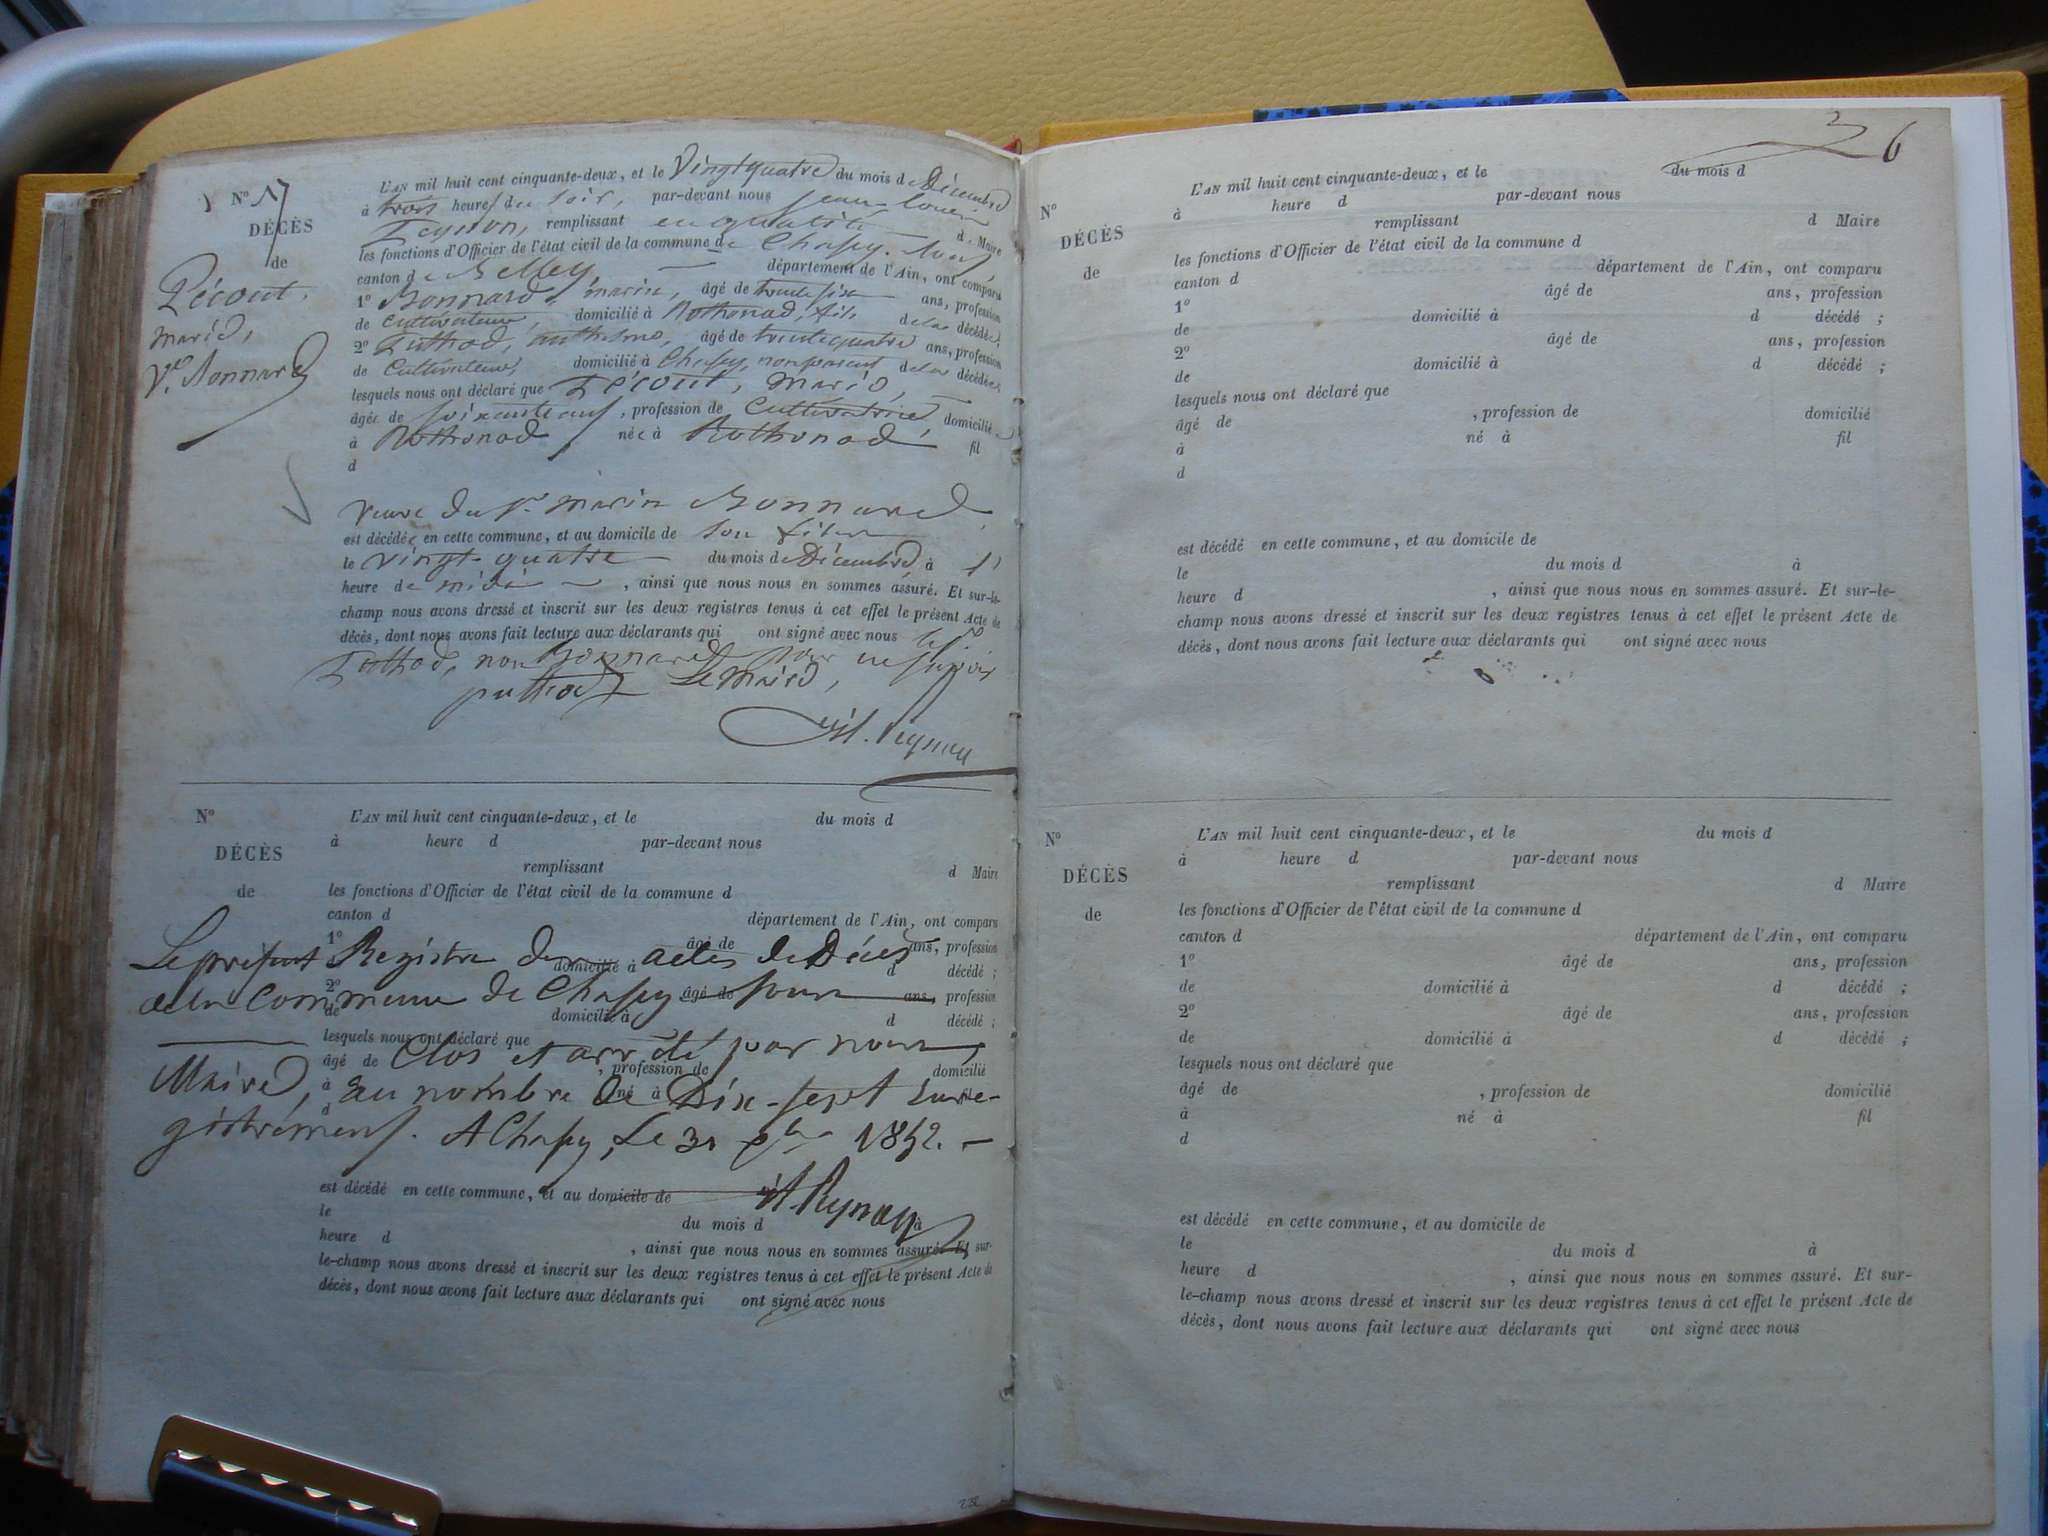 N° 17
DÉCÈS
de
Pécout,
marie,
Ve. Bonnard
L'AN mil huit cent cinquante-deux, et le Vingt quatre du mois de Décembre
à trois heures du soir, par-devant nous Jean-Louis
Peysson, remplissant en qualité d. Maire
les fonctions d'Officier de l'état civil de la commune de Chazey-
canton de Belley, département de l'Ain, ont comparu
1° Bonnard, marin, âgé de trente six ans, profession
de Cultivateur, domicilié à Rothonod, fils de la décédée;
2° Puthod, anthelme, âgé de trente quatre ans, profession
de Cultivateur, domicilié à Chazey, non parent de la décédée;
lesquels nous ont déclaré que Pécout, Marie,
âgée de soixante ans, profession de Cultivatrice, domiciliée
à Rothonod, née à Rothonod, fil
d
veuve du Sr. marin Bonnard,
est décédée en cette commune, et au domicile de son fils
le vingt-quatre du mois de Décembre, à
heure de midi, ainsi que nous nous en sommes assuré. Et sur-le-
champ nous avons dressé et inscrit sur les deux registres tenus à cet effet le présent Acte de
décès, dont nous avons fait lecture aux déclarants qui ont signé avec nous le Sr.
Puthod, non Bonnard pour ne savoir
puthod Le Maire,
N°
DÉCÈS
de
L'AN mil huit cent cinquante-deux, et le du mois d
à heure d par-devant nous
remplissant d Maire
les fonctions d'Officier de l'état civil de la commune d
canton d département de l'Ain, ont comparu
1° âgé de ans, profession
Le présent Registre des actes de Décès
domicilié à d décédé ;
2° âgé de ans, profession
de la Commune de Chazey
de domicilié à d décédé ;
lesquels nous ont déclaré que
Clos et arrêté par nous
âgé de , profession de domicilié
Maire, au nombre de Dix-sept enre-
à né à
d
gistrements. A Chazey, Le 31 Xbre 1852.
est décédé en cette commune, et au domicile de
le du mois d à
heure d , ainsi que nous nous en sommes assuré. Et sur-
le-champ nous avons dressé et inscrit sur les deux registres tenus à cet effet le présent Acte de
décès, dont nous avons fait lecture aux déclarants qui ont signé avec nous
36
N°
DÉCÈS
de
L'AN mil huit cent cinquante-deux, et le du mois d
à heure d par-devant nous
remplissant d Maire
les fonctions d'Officier de l'état civil de la commune d
canton d département de l'Ain, ont comparu
1° âgé de ans, profession
de domicilié à d décédé ;
2° âgé de ans, profession
de domicilié à d décédé ;
lesquels nous ont déclaré que
âgé de , profession de domicilié
à né à fil
d
est décédé en cette commune, et au domicile de
le du mois d à
heure d , ainsi que nous nous en sommes assuré. Et sur-le-
champ nous avons dressé et inscrit sur les deux registres tenus à cet effet le présent Acte de
décès, dont nous avons fait lecture aux déclarants qui ont signé avec nous
N°
DÉCÈS
de
L'AN mil huit cent cinquante-deux, et le du mois d
à heure d par-devant nous
remplissant d Maire
les fonctions d'Officier de l'état civil de la commune d
canton d département de l'Ain, ont comparu
1° âgé de ans, profession
de domicilié à d décédé ;
2° âgé de ans, profession
de domicilié à d décédé ;
lesquels nous ont déclaré que
âgé de , profession de domicilié
à né à fil
d
est décédé en cette commune, et au domicile de
le du mois d à
heure d , ainsi que nous nous en sommes assuré. Et sur-
le-champ nous avons dressé et inscrit sur les deux registres tenus à cet effet le présent Acte de
décès, dont nous avons fait lecture aux déclarants qui ont signé avec nous